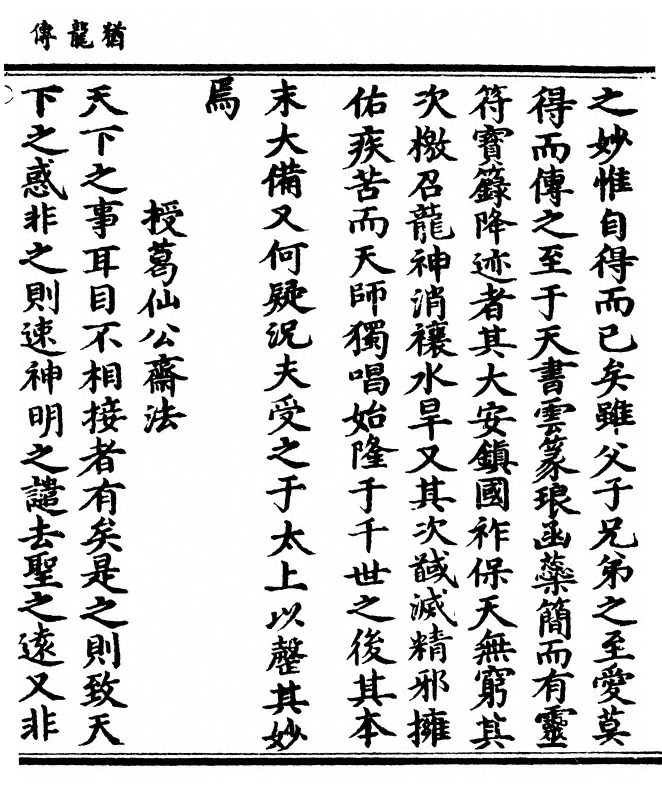 猶龍傳
之妙惟自得而已矣雖父子兄弟之至愛莫
得而傳之至于天書雲篆琅函蘂簡而有靈
符寶籙降迹者其大安鎮國祚保天無窮其
次檄召龍神消禳水旱又其次馘滅精邪擁
佑疾苦而天師獨唱始隆于千世之後其本
末大備又何疑況夫受之于太上以罄其妙
焉
授葛仙公齋法
天下之事耳目不相接者有矣是之則致天
下之惑非之則速神明之譴去聖之遠又非